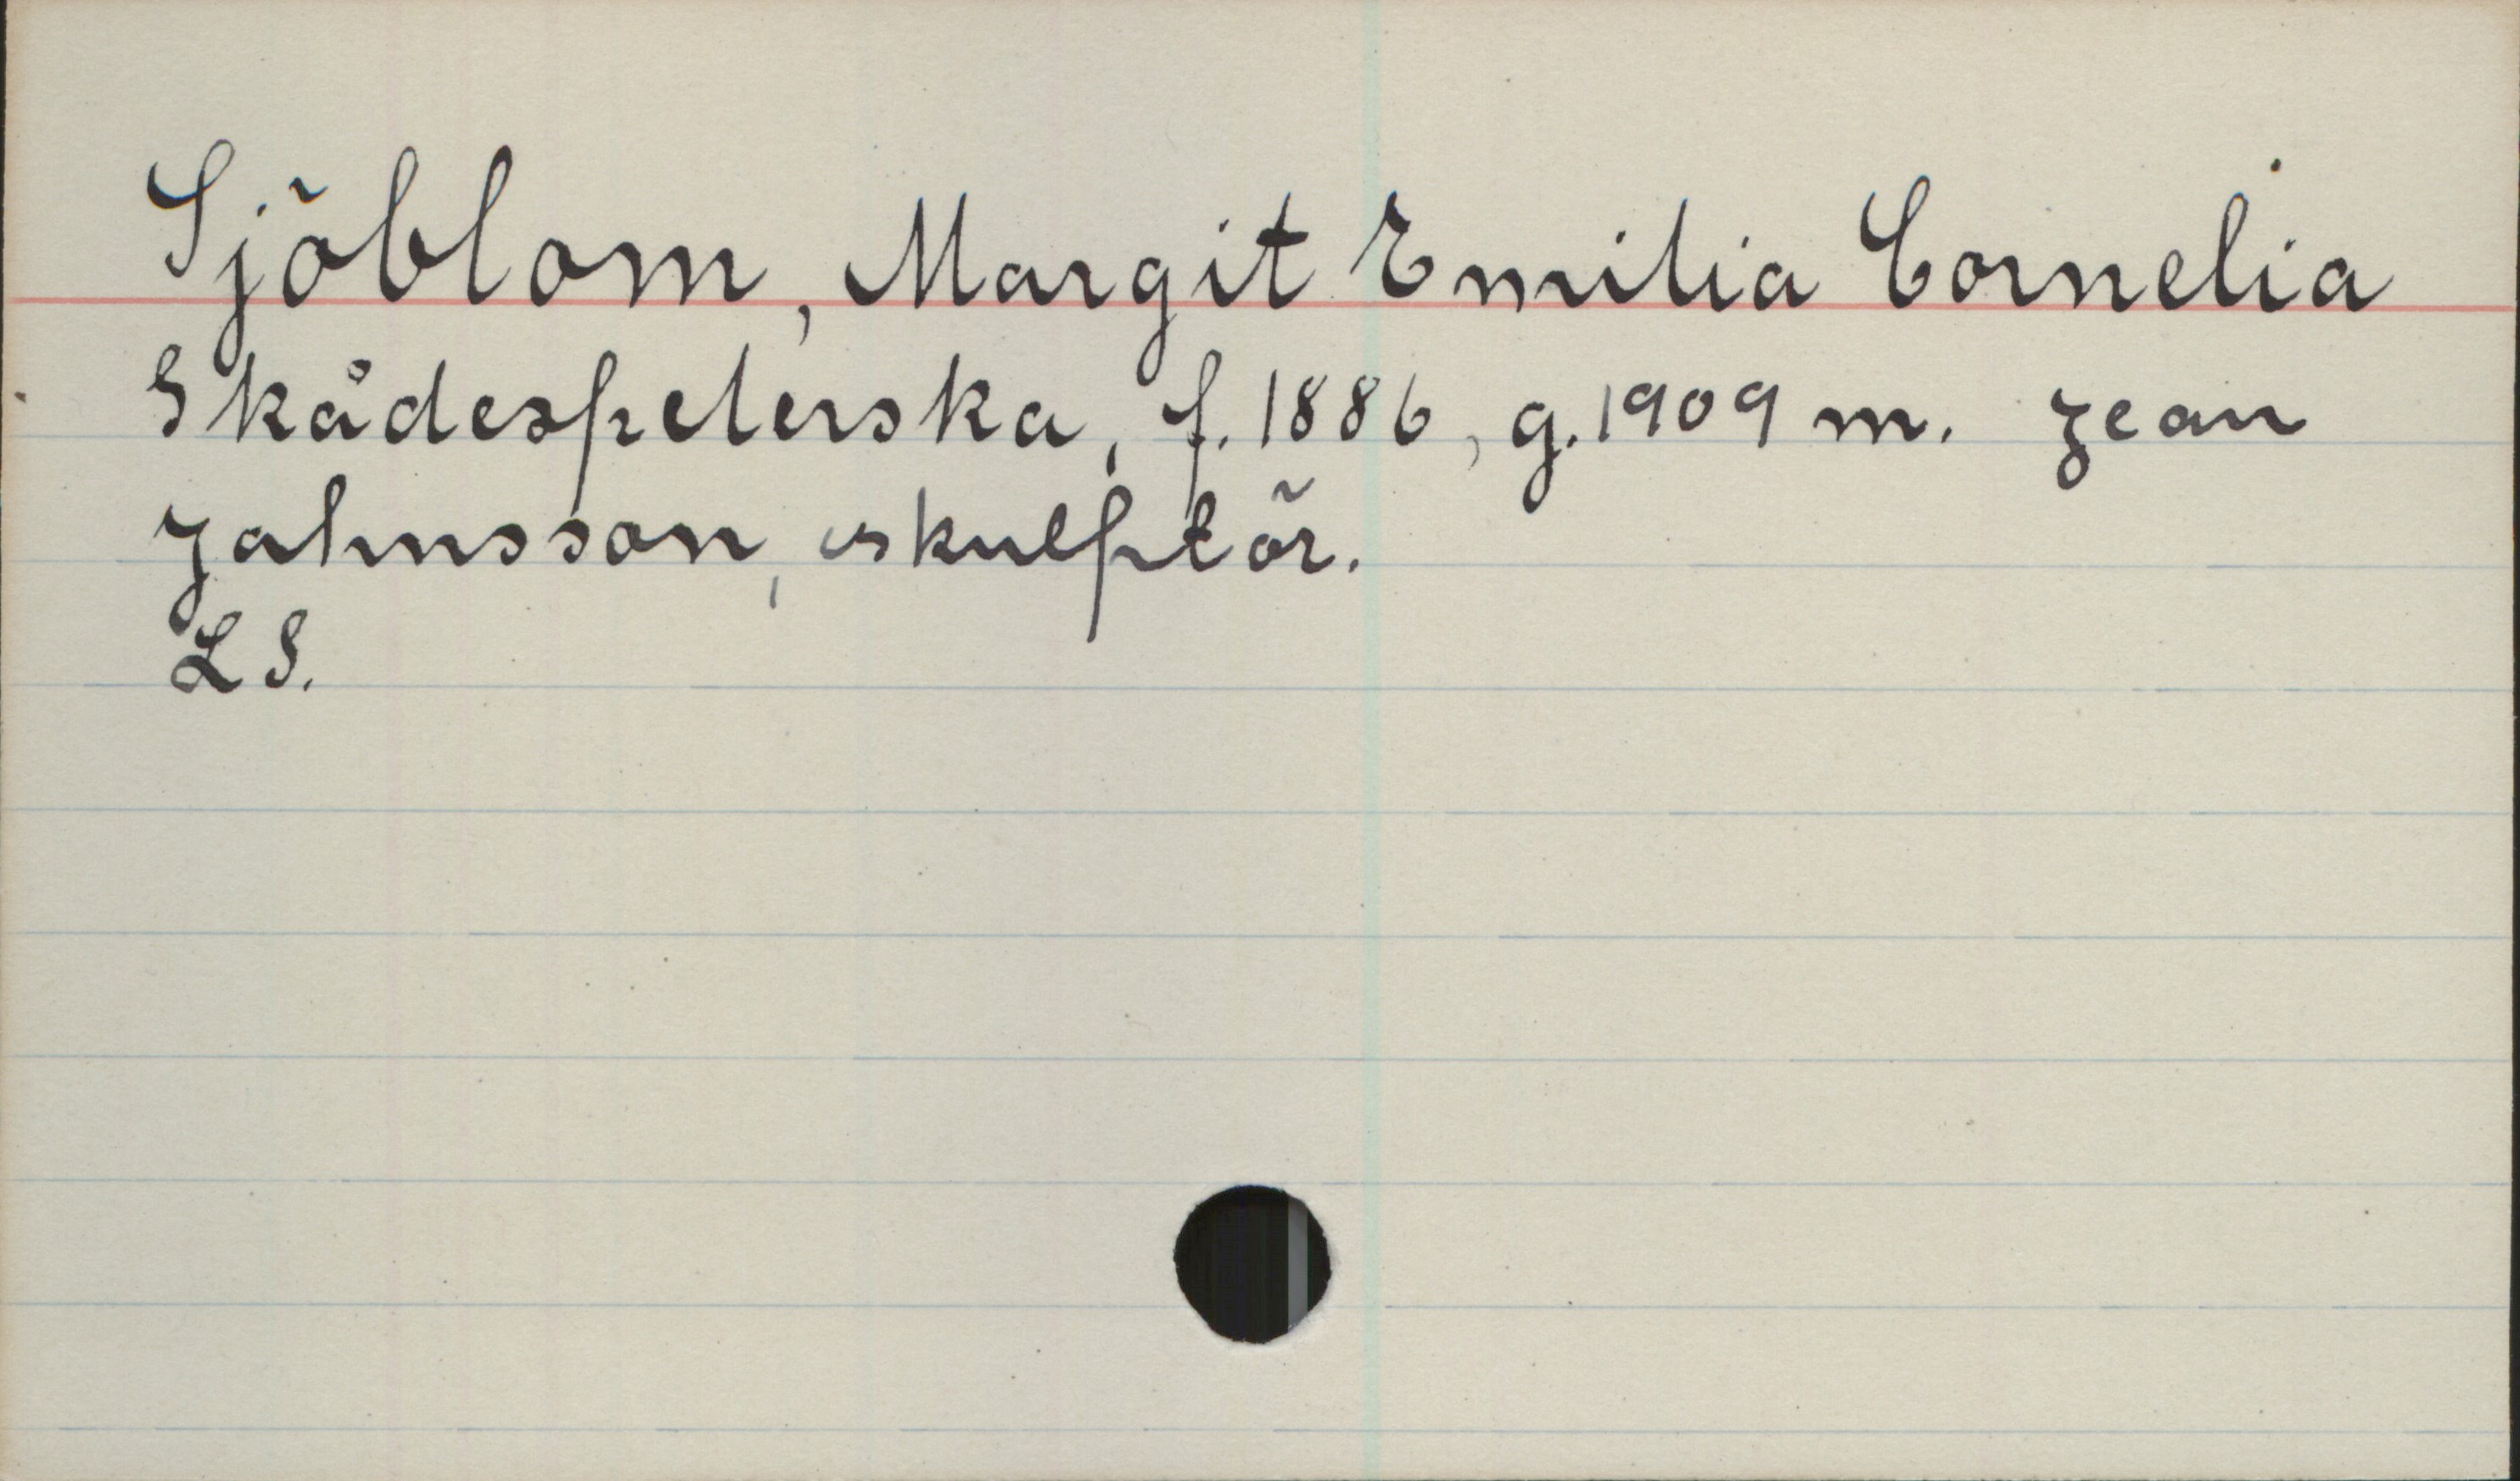 Sjöblom, Margit Emilia Cornelia
Skådespelerska, f. 1886, g. 1909 m. Jean
Jahnsson, skulptör.
L S.